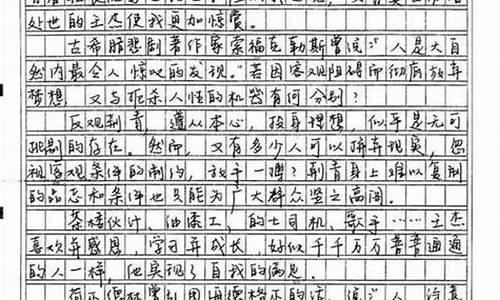 处世的王杰使我更加惊赏。
古希腊悲剧著作家索福克勒斯曾说：“人是大自
然内最令人惊叹的发现。”若因客观阻碍而彻底放弃
梦想，又与扼杀人性的机器有何分别？
反观荆青，遵从本心，投身理想，似乎是无可
挑剔的存在。然而，又有多少人可以拼弃现实，忽
视客观条件的制约，放手一搏？荆青身上难以复制
的品态和条件也只能为广大群众竖之高阁。
茶楼伙计、油漆工，的士司机、歌手……王杰
喜欢并感恩，学习并成长，好似千千万万普普通通
的人一样，他实现了自我的满足。